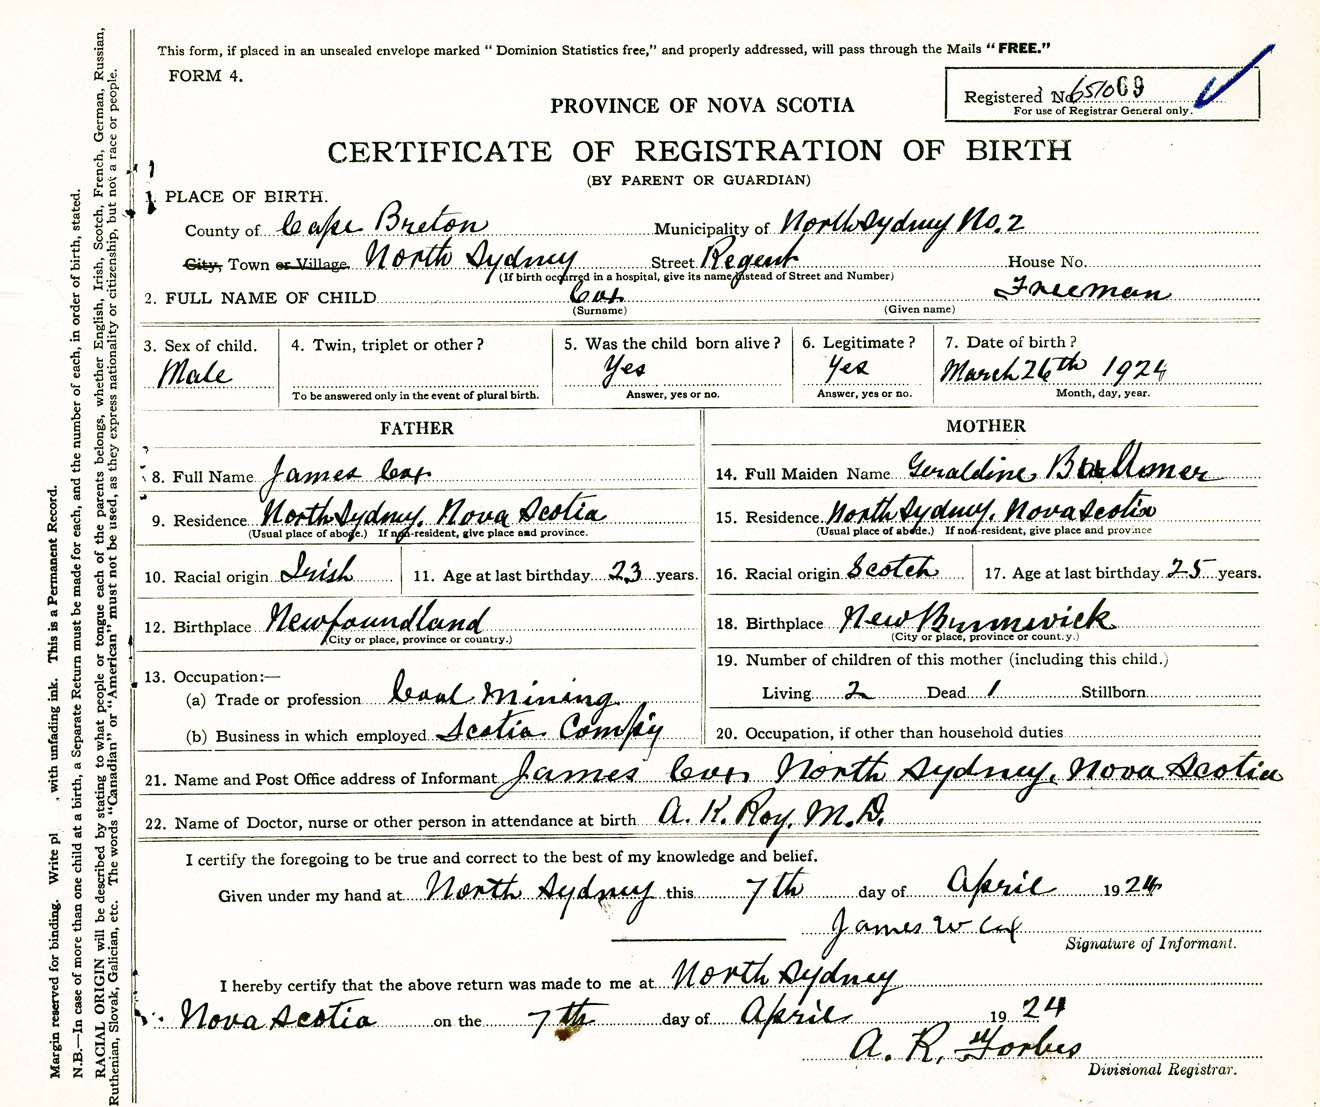 This form, if placed in an unsealed envelope marked “ Dominion Statistics free,” and properly addressed, will pass through the Mails “ FREE.”
FORM 4.
Registered No. 651069
For use of Registrar General only.
PROVINCE OF NOVA SCOTIA
CERTIFICATE OF REGISTRATION OF BIRTH
(BY PARENT OR GUARDIAN)
1. PLACE OF BIRTH.
County of Cape Breton Municipality of North Sydney No. 2
City, Town or Village North Sydney Street Regent House No.
(If birth occurred in a hospital, give its name instead of Street and Number)
2. FULL NAME OF CHILD Cox Freeman
(Surname) (Given name)
3. Sex of child. 4. Twin, triplet or other ? 5. Was the child born alive ? 6. Legitimate ? 7. Date of birth ?
Male Yes Yes March 26th 1924
To be answered only in the event of plural birth. Answer, yes or no. Answer, yes or no. Month, day, year.
FATHER
8. Full Name James Cox
9. Residence North Sydney, Nova Scotia
(Usual place of abode.) If non-resident, give place and province.
10. Racial origin Irish 11. Age at last birthday 23 years.
12. Birthplace Newfoundland
(City or place, province or country.)
13. Occupation:—
(a) Trade or profession Coal Mining
(b) Business in which employed Scotia Comp'y
MOTHER
14. Full Maiden Name Geraldine
15. Residence North Sydney, Nova Scotia
(Usual place of abode.) If non-resident, give place and province
16. Racial origin Scotch 17. Age at last birthday 25 years.
18. Birthplace New Brunswick
(City or place, province or country.)
19. Number of children of this mother (including this child.)
Living 2 Dead 1 Stillborn
20. Occupation, if other than household duties
21. Name and Post Office address of Informant James Cox North Sydney, Nova Scotia
22. Name of Doctor, nurse or other person in attendance at birth A. K. Roy, M. D.
I certify the foregoing to be true and correct to the best of my knowledge and belief.
Given under my hand at North Sydney this 7th day of April 1924
James W Cox
Signature of Informant.
I hereby certify that the above return was made to me at North Sydney
Nova Scotia on the 7th day of April 1924
A. R. Forbes
Divisional Registrar.
Margin reserved for binding. Write pl , with unfading ink. This is a Permanent Record.
N.B.—In case of more than one child at a birth, a Separate Return must be made for each, and the number of each, in order of birth, stated.
RACIAL ORIGIN will be described by stating to what people or tongue each of the parents belongs, whether English, Irish, Scotch, French, German, Russian,
Ruthenian, Slovak, Galician, etc. The words “Canadian” or “American” must not be used, as they express nationality or citizenship, but not a race or people.